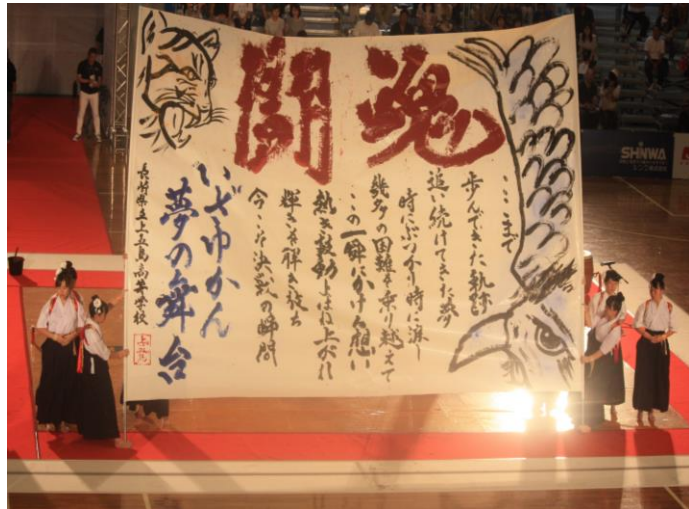 闘魂
ここまで
歩んできた軌跡
追い続けてきた夢
時にぶつかり時に涙し
幾多の困難を乗り越えて
この一瞬にかける想い
熱き鼓動よはね上がれ
輝きを解き放ち
今こそ決戦の瞬間
いざゆかん
夢の舞台
長崎県立上五島高等学校
SHINWA